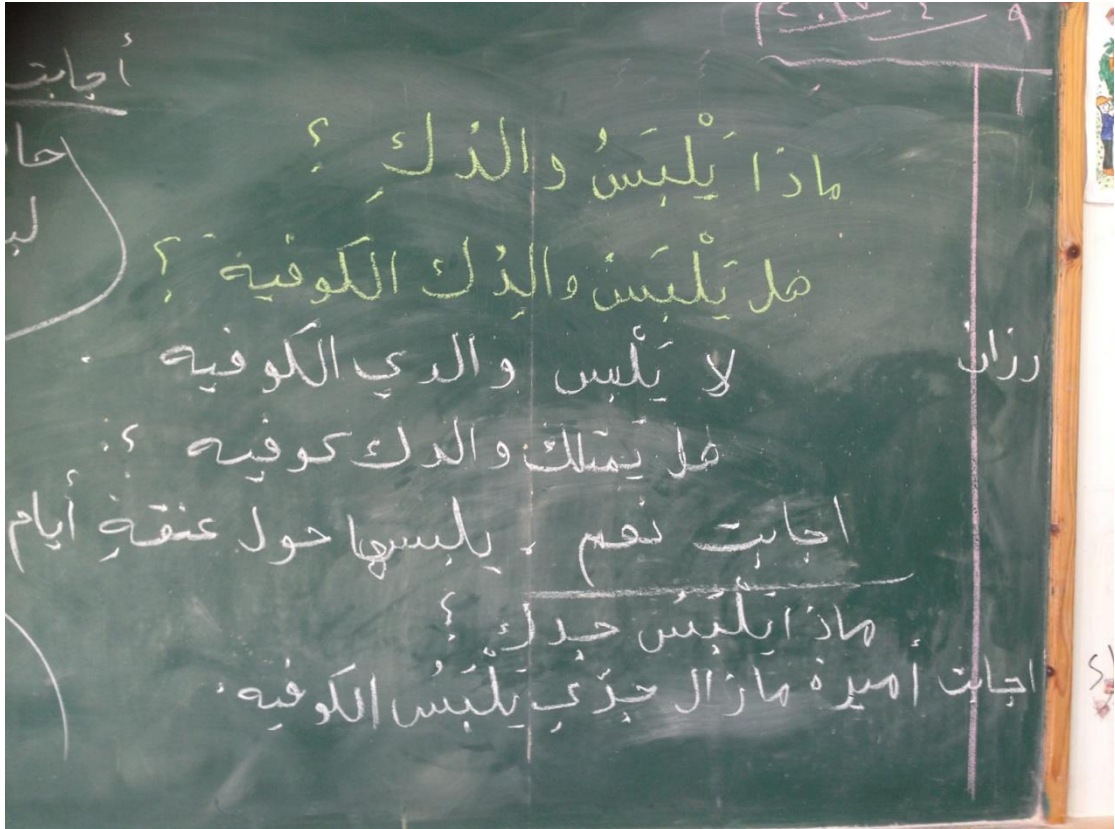 ماذا يَلْبَسُ والدُكِ ؟
هل يَلْبَسُ والِدُك الكوفية ؟
رزان
لا يَلْبس والدي الكوفيه .
هل يَمتلك والدك كوفيه ؟
اجابت نعم ، يلبسها حول عنقةِ أيام
ماذا يَلْبَسُ جدك ؟
اجابت أميرة مازال جدّي يَلْبَسُ الكوفيه .
أجابت